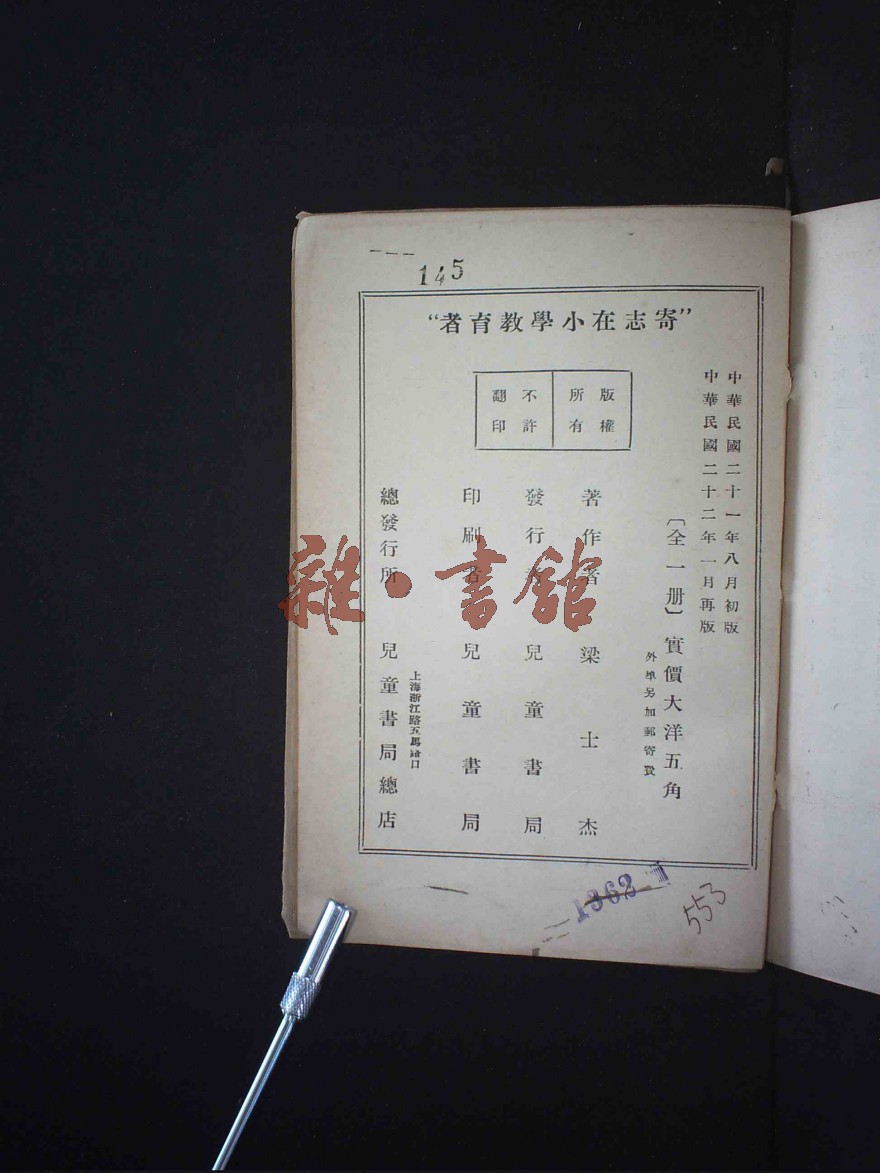 145
“寄志在小學教育者”
中華民國二十一年八月初版
中華民國二十二年一月再版
版權所有
不許翻印
〔全一册〕實價大洋五角
外埠另加郵寄費
著作者 梁士杰
發行者 兒童書局
印刷者 兒童書局
上海浙江路五馬路口
總發行所 兒童書局總店
1362
553
雜·書館